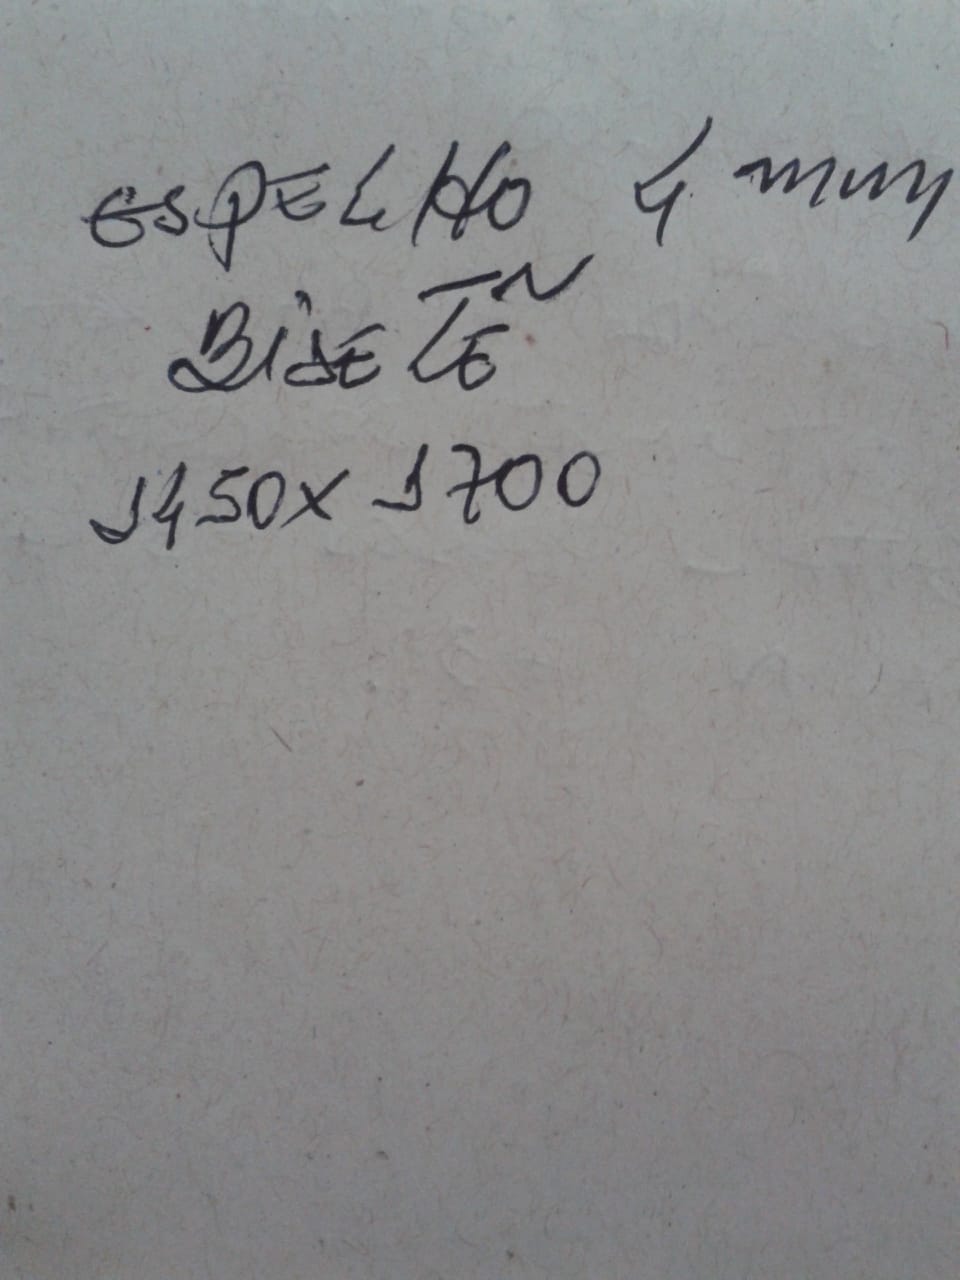 ESPELHO 4 mm
BISETE
1450x1700